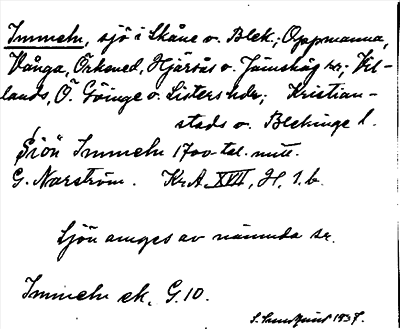 Immeln, sjö i Skåne o. Blek.; Oppmanna,
Vånga, Örkened, Hjärsås o. Jämshög sr; Vil-
lands, Ö. Göinge o. Listers hdr; Kristian-
stads o. Blekinge l.
Siön Immeln 1700-tal. mitt.
G. Narström. Kr.A XVII, H. 1. b.
Sjön anges av nämnda sr.
Immeln ek. G.10.
S. Sundquist 1937.